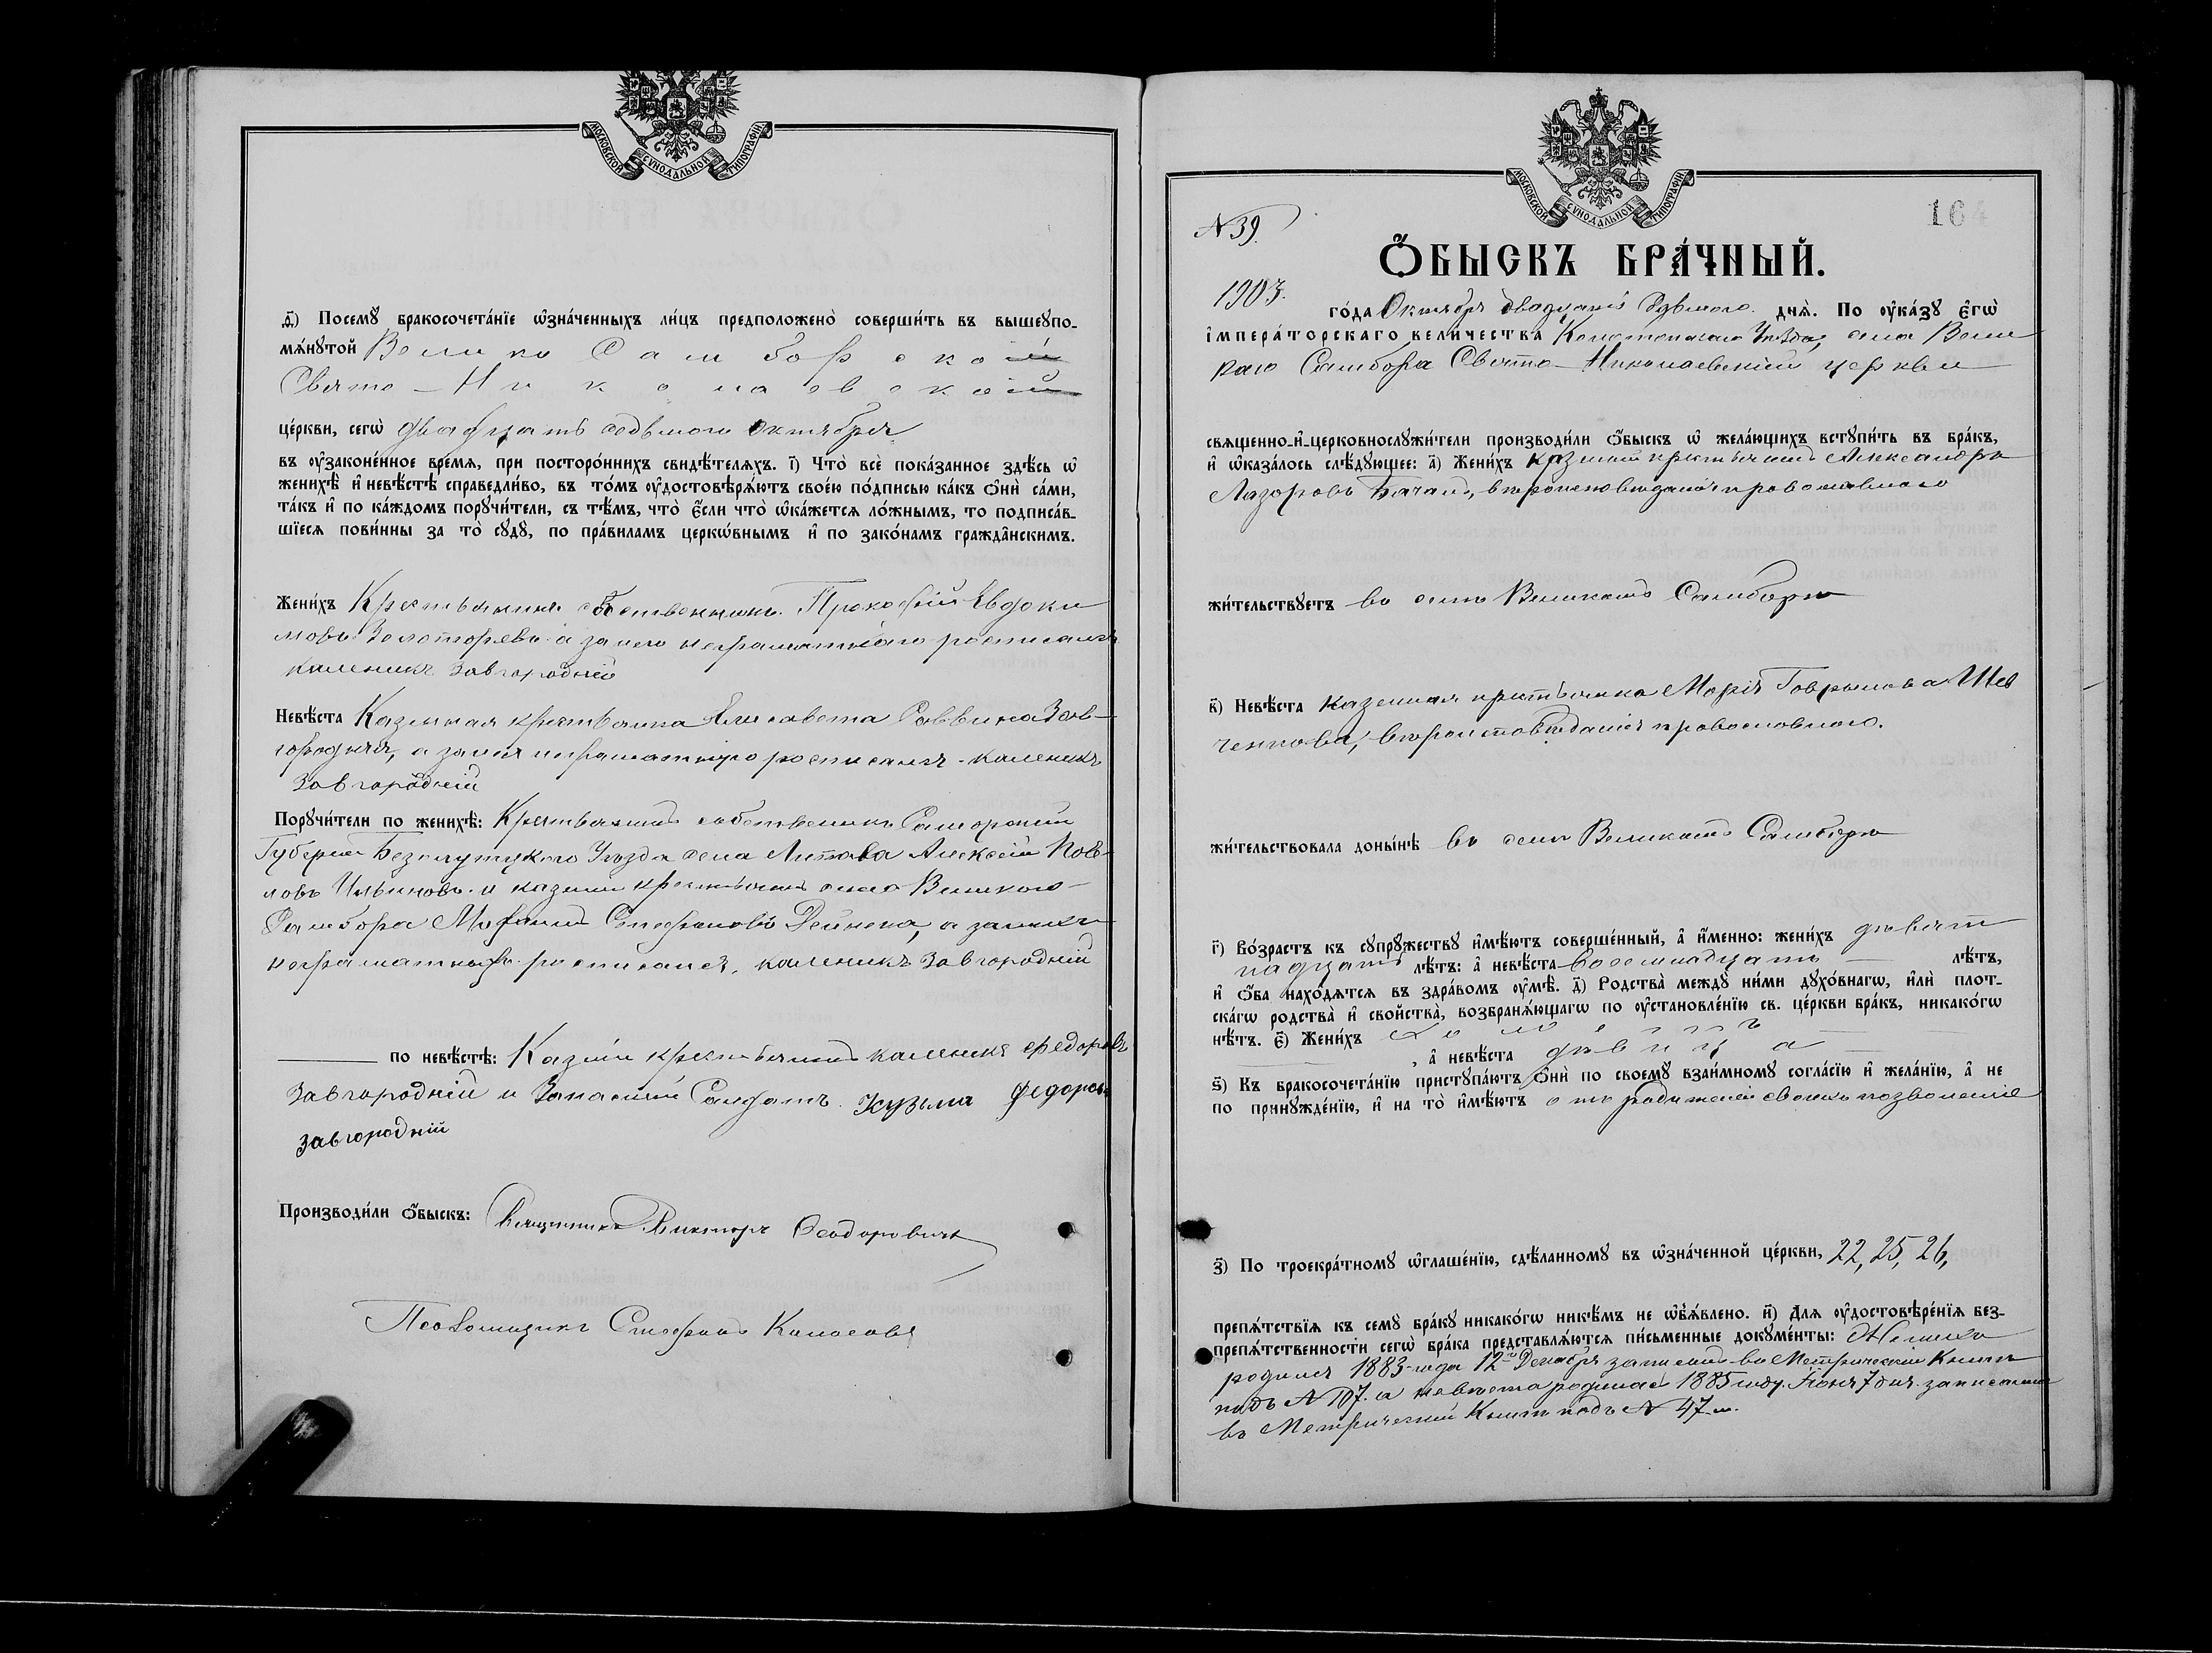 МОСКОВСКОЙ СѴНОДАЛЬНОЙ ТИПОГРАФІИ
д҃і) Посемꙋ̀ бракосочета́нїе ѡ҆зна́ченныхъ ли́цъ предположено̀ соверши́ть въ вышеꙋпо-
мѧ́нꙋтой Велико Самборской
Свято-Николаевской
це́ркви, сегѡ̀ двадцать седьмого Октября
въ ᲂу҆зако́ненное вре́мѧ, при посторо́ннихъ свидѣ́телѧхъ. і҃) Что̀ всѐ пока́занное здѣ́сь ѡ҆
женихѣ̀ и҆ невѣ́стѣ справедли́во, въ то́мъ ᲂу҆достовѣрѧ́ютъ свое́ю по́дписью ка́къ ѻ҆нѝ са́ми,
та́къ и҆ по ка́ждомъ порꙋчи́тели, съ тѣ́мъ, что̀ є҆́сли что̀ ѡ҆ка́жетсѧ ло́жнымъ, то подписа́в-
шїесѧ пови́нны за то̀ сꙋдꙋ̀, по пра́виламъ церкѡ́внымъ и҆ по зако́намъ гражда̂нскимъ.
Жени́хъ Крестьянинъ собственникъ Прокофій Евдоки
мовъ Золоторевъ а за него неграматнаго росписался
каленикъ Завгородній
Невѣ́ста Казенная крестьянка Елисавета Саввина Зав-
городняя, а за нея неграматную росписался каленикъ
Завгородній
Порꙋчи́тели по женихѣ̀: Крестьянинъ собственникъ Самарской
Губерніи Уѣзда села Алексѣй Пов-
ловъ Ильиновъ и казенній крестьянинъ села Великого
Самбора Стефановъ Дейнека, а за нихъ
неграматныхъ росписался, каленикъ Завгородній
по невѣ́стѣ: Казеній крестьянинъ каленикъ Федоровъ
Завгородній и Запасній Солдатъ Кузьма Федоровъ
Завгородній
Производи́ли ѻ҆́быскъ: Священникъ Викторъ Ѳеодоровичъ
Псаломщикъ Стефанъ
МОСКОВСКОЙ СѴНОДАЛЬНОЙ ТИПОГРАФІИ
№ 39.
164
Ѻ҆́БЫСКЪ БРА́ЧНЫЙ.
1903. го́да Октября двадцать седьмого днѧ̀. По ᲂу҆ка́зꙋ є҆гѡ̀
і҆мпера́торскаго вели́чества Конотопскаго Уѣзда, села Вели
каго Самбора Свято-Николаевской церкви
свѧще́нно-и҆-церковнослꙋжи́тели производи́ли ѻ҆́быскъ ѡ҆ жела́ющихъ встꙋпи́ть въ бра́къ,
и҆ ѡ҆каза́лось слѣ́дꙋющее: а҃) Жени́хъ казенній крестьянинъ Александръ
Лазоровъ вѣроисповѣданія провославного
жи́тельствꙋетъ въ селѣ Великомъ Самборѣ
в҃) Невѣ́ста казенная крестьянка Марія Говрылова Шев
ченкова, вѣроисповѣданія провославного.
жи́тельствовала доны́нѣ въ селѣ Великомъ Самборѣ
г҃) Во́зрастъ къ сꙋпрꙋ́жествꙋ и҆мѣ́ютъ соверше́нный, а҆ и҆́менно: жени́хъ девят
надцать лѣ́тъ: а҆ невѣ́ста восемнадцать лѣ́тъ,
и҆ ѻ҆́ба нахо́дѧтсѧ въ здра́вомъ ᲂу҆мѣ̀. д҃) Родства̀ междꙋ̀ ни́ми дꙋхо́внагѡ, и҆лѝ плот-
ска́гѡ родства̀ и҆ сво́йства̀, возбранѧ́ющагѡ по ᲂу҆становле́нїю св. це́ркви бра́къ, никако́гѡ
нѣ́тъ. є҃) Жени́хъ холостъ
, а҆ невѣ́ста девица
ѕ҃) Къ бракосочета́нїю пристꙋпа́ютъ ѻ҆нѝ по своемꙋ̀ взаи́мномꙋ согла́сїю и҆ жела́нїю, а҆ не
по принꙋжде́нїю, и҆ на то̀ и҆мѣ́ютъ отъ родителей своихъ позволеніе
з҃) По троекра́тномꙋ ѡ҆глаше́нїю, сдѣ́ланномꙋ въ ѡ҆зна́ченной це́ркви, 22, 25, 26,
препѧ́тствїѧ къ семꙋ̀ бра́кꙋ никако́гѡ никѣ́мъ не ѡ҆б̾ѧ́влено. и҃) Для ᲂу҆достовѣре́нїѧ без-
препѧ́тственности сегѡ̀ бра́ка представлѧ́ютсѧ пи́сьменные докꙋме́нты: Жениха
родился 1883 года 12 Декабря записанъ въ Метрической Книгѣ
подъ № 107. а невѣста родилась 1885 году Іюня 7 дня записанна
въ Метрической Книгѣ подъ № 47 м.